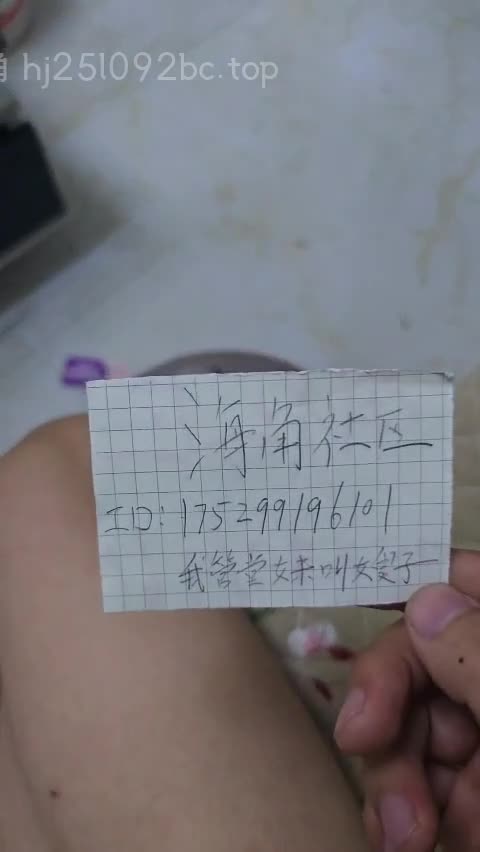 角 hj25l092bc.top
海角社区
ID: 175299196101
我管堂妹叫嫂子